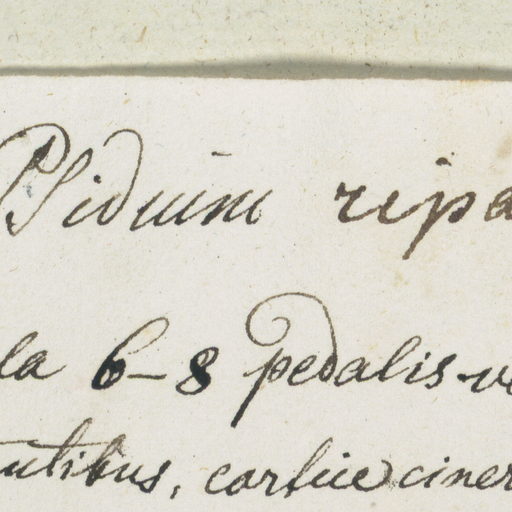 Psidium ripa
la 6-8 pedalis-ve
utibus, cortice ciner